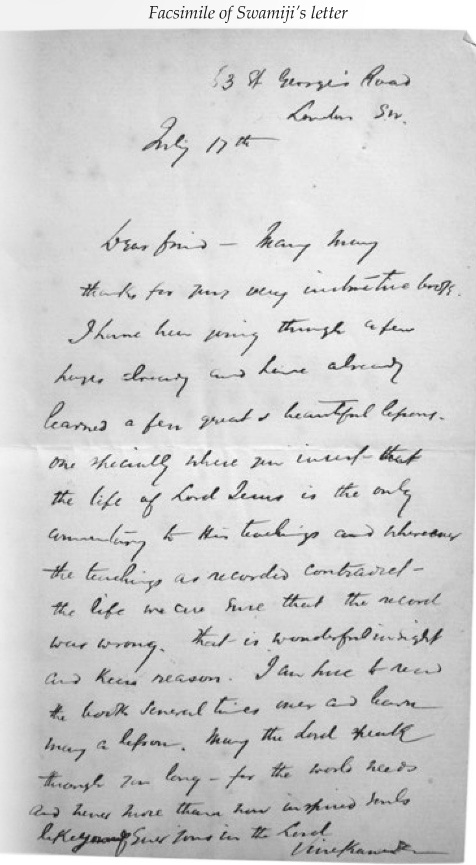 Facsimile of Swamiji's letter
63 St George's Road
London S.W.
July 17th
Dear friend — Many many
thanks for your very instructive book.
I have been going through a few
pages already and have already
learned a few great & beautiful lessons.
one specially where you insist that
the life of Lord Jesus is the only
commentary to His teachings and wherever
the teachings as recorded contradict
the life we are sure that the record
was wrong. that is wonderful insight
and keen reason. I am sure to read
the book several times over and learn
many a lesson. May the Lord speak
through you long — for the world needs
and never more than now inspired souls
like yourself Ever yours in the Lord
Vivekananda